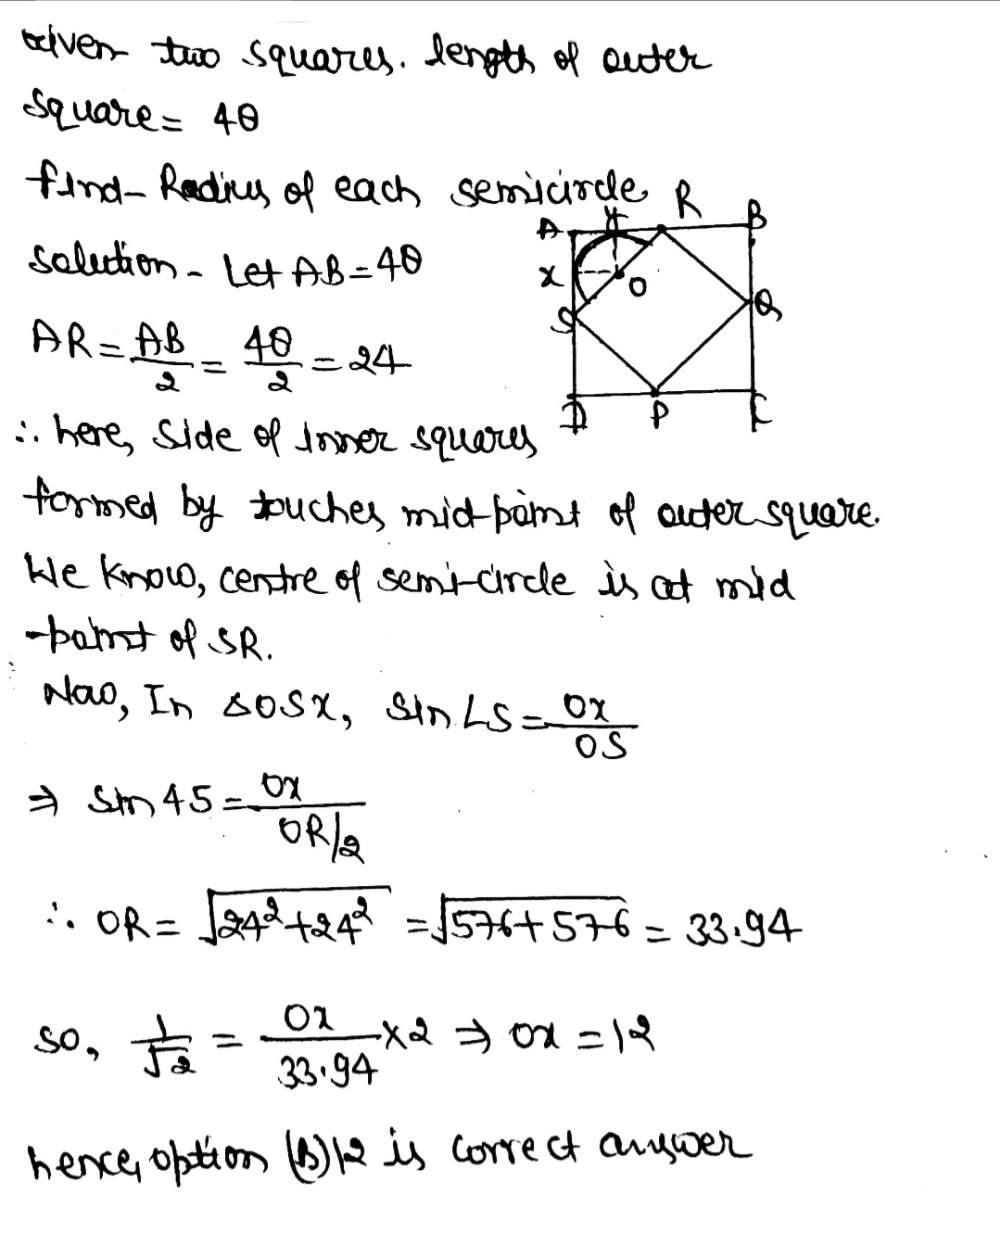 Given two squares. length of outer
square = 48
find - Radius of each semicircle
A Y R B
solution - Let AB = 48
X O
AR = AB/2 = 48/2 = 24
S Q
D P C
∴ here, side of inner squares
formed by touches mid-point of outer square.
We know, centre of semi-circle is at mid
-point of SR.
Now, In ΔOSX, Sin∠S = OX/OS
⇒ Sin 45 = OX/OR/2
∴ OR = √24²+24² = √576+576 = 33.94
so, 1/√2 = OX/33.94 ×2 ⇒ OX = 12
hence, option (B)12 is correct answer